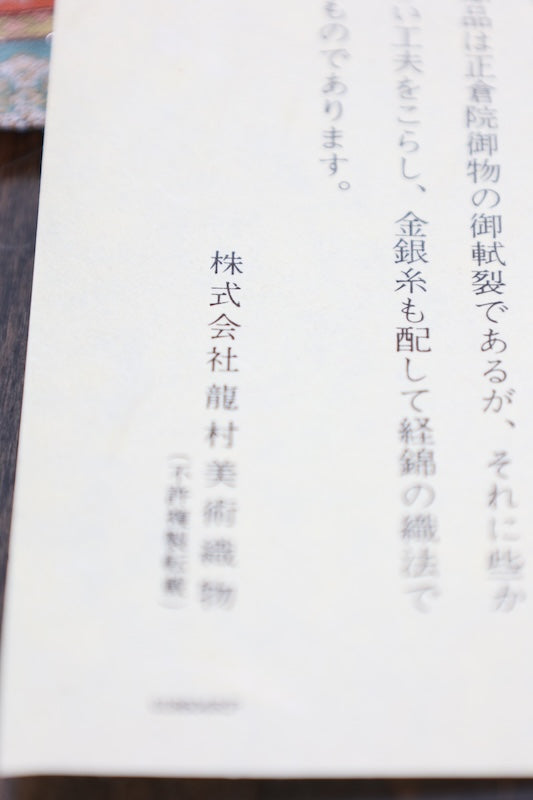 品は正倉院御物の御軾裂であるが、それに些か
い工夫をこらし、金銀糸も配して経錦の織法で
ものであります。
株式会社龍村美術織物
(不許複製転載)